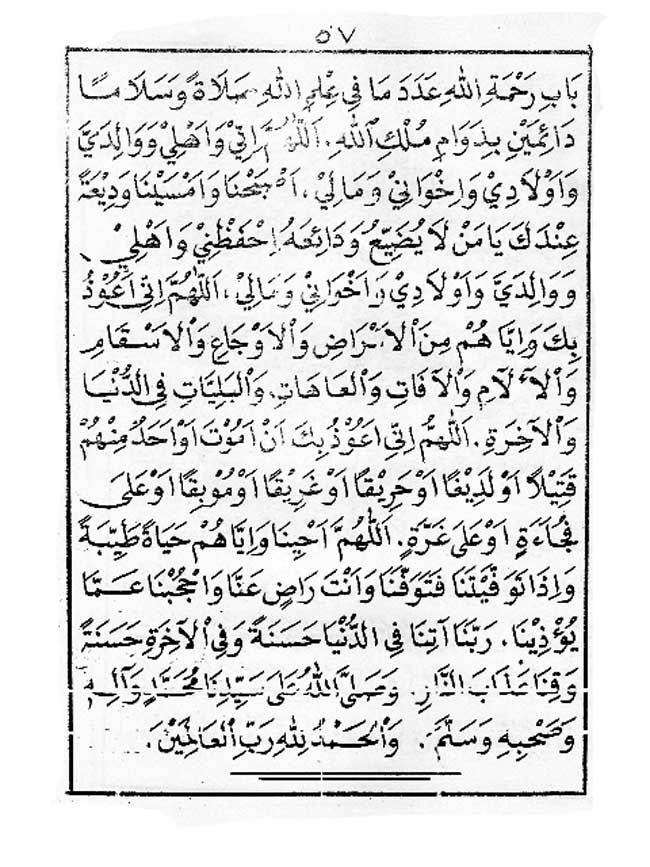 ٥٧
بَابِ رَحْمَةِ اللهِ عَدَدَ مَا فِي عِلْمِ اللهِ صَلَاةً وَسَلَامًا
دَائِمَيْنِ بِدَوَامِ مُلْكِ اللهِ. اَللّٰهُمَّ اِنِّيْ وَاَهْلِيْ وَوَالِدَيَّ
وَاَوْلَادِيْ وَاِخْوَانِيْ وَمَالِيْ، اَصْبَحْنَا وَاَمْسَيْنَا وَدِيْعَةً
عِنْدَكَ يَا مَنْ لَا يُضَيِّعُ وَدَائِعَهُ اِحْفَظْنِيْ وَاَهْلِيْ
وَوَالِدَيَّ وَاَوْلَادِيْ وَاَخْوَانِيْ وَمَالِيْ، اَللّٰهُمَّ اِنِّى اَعُوْذُ
بِكَ وَاِيَّاهُمْ مِنَ الْاَمْرَاضِ وَالْاَوْجَاعِ وَالْاَسْقَامِ
وَالْآلَامِ وَالْآفَاتِ وَالْعَاهَاتِ. وَالْبَلِيَّاتِ فِى الدُّنْيَا
وَالْآخِرَةِ. اَللّٰهُمَّ اِنِّى اَعُوْذُ بِكَ اَنْ اَمُوْتَ اَوْ اَحَدٌ مِنْهُمْ
قَتِيْلاً اَوْ لَدِيْغًا اَوْ حَرِيْقًا اَوْ غَرِيْقًا اَوْ مُوْبِقًا اَوْ عَلَى
فُجَاءَةٍ اَوْ عَلَى غَرَّةٍ. اَللّٰهُمَّ اَحْيِنَا وَاِيَّاهُمْ حَيَاةً طَيِّبَةً
وَاِذَا تَوَفَّيْتَنَا فَتَوَفَّنَا وَاَنْتَ رَاضٍ عَنَّا وَاحْجُبْنَا عَمَّا
يُؤْذِيْنَا. رَبَّنَا آتِنَا فِي الدُّنْيَا حَسَنَةً وَفِى الْآخِرَةِ حَسَنَةً
وَقِنَا عَذَابَ النَّارِ. وَصَلَّى اللهُ عَلَى سَيِّدِنَا مُحَمَّدٍ وَآلِهِ
وَصَحْبِهِ وَسَلَّمَ. وَالْحَمْدُ لِلّٰهِ رَبِّ الْعَالَمِيْنَ.